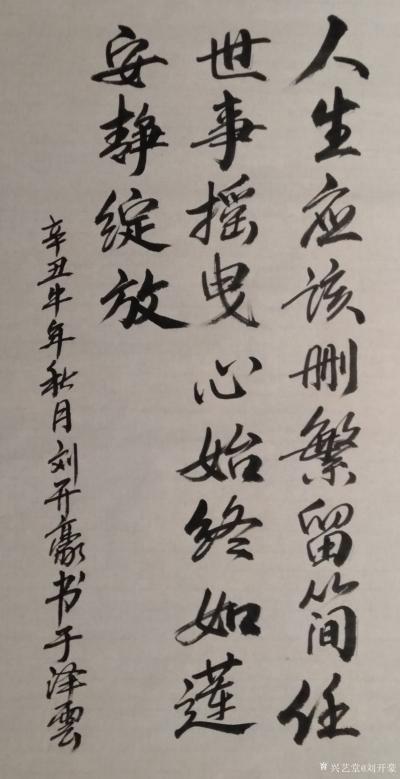 人生应该删繁留简任
世事摇曳心始终如莲
安静绽放
辛丑牛年秋月刘开豪书于泽雲
兴艺堂@刘开豪